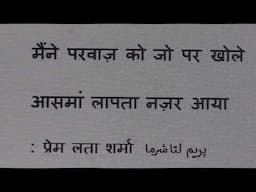 मैंने परवाज़ को जो पर खोले
आसमां लापता नज़र आया
: प्रेम लता शर्मा پریم لتا شرما